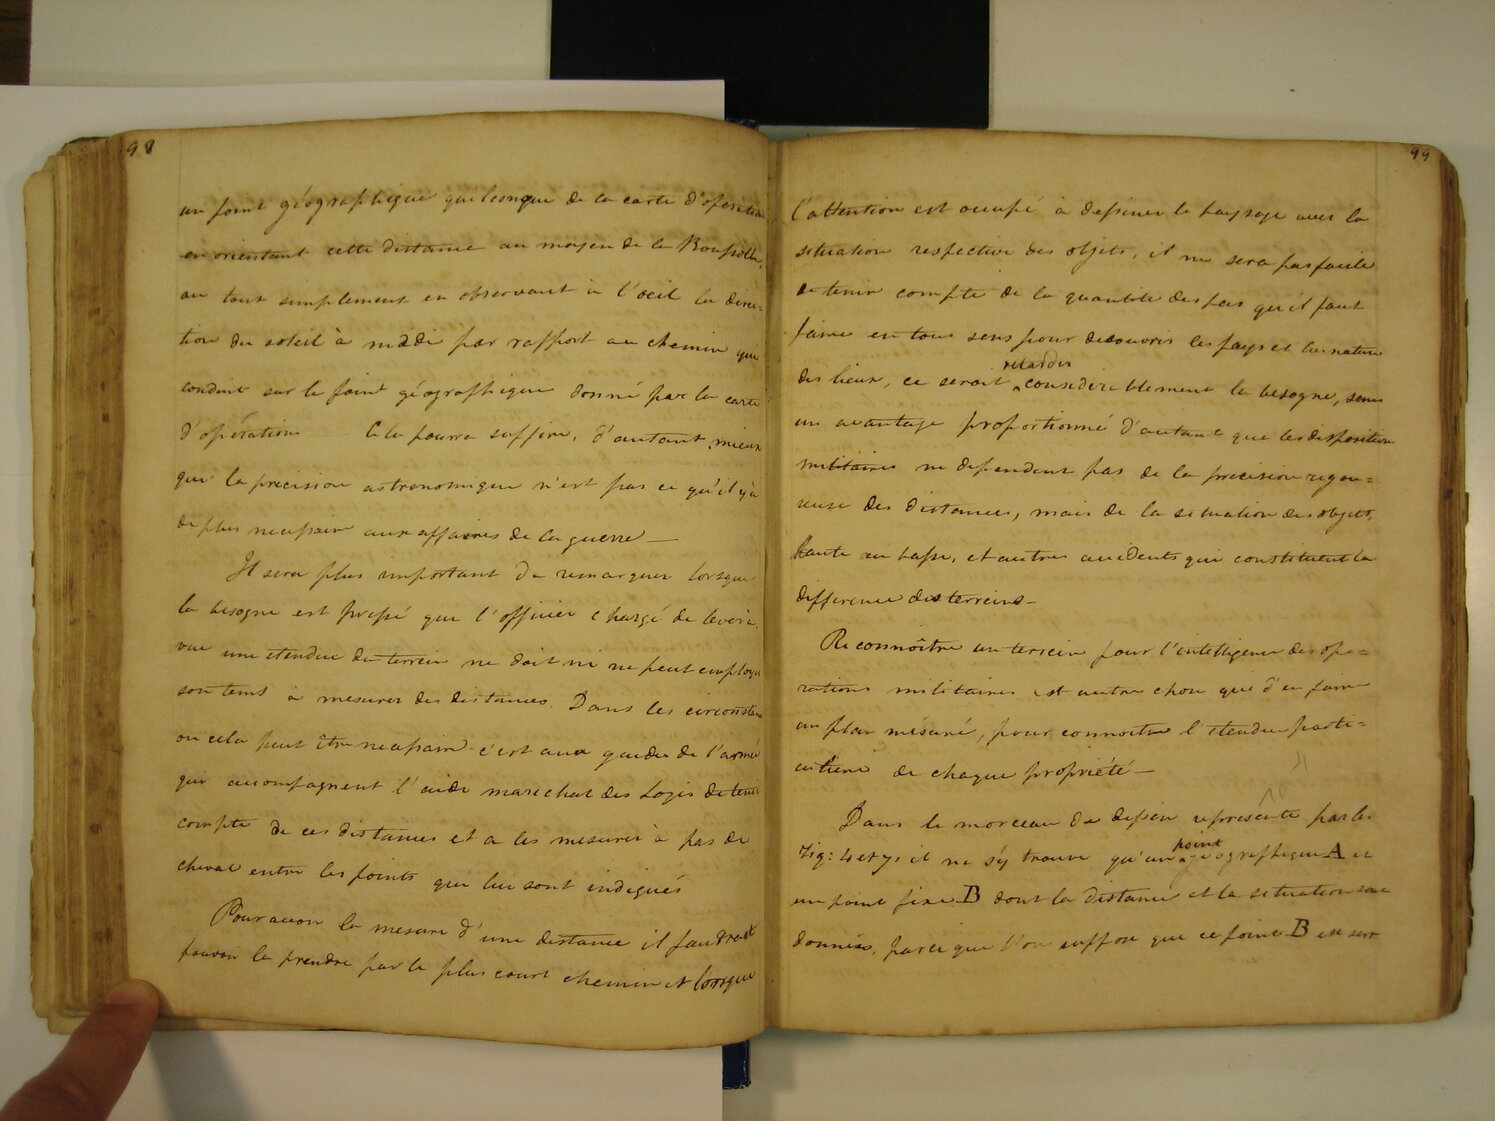 98
un point géographique quelconque de la carte d'operation
en orientant cette distance au moyen de la Boussolle,
ou tout simplement en observant à l'oeil la direc=
tion du soleil à midi par rapport au chemin qui
conduit sur le point géographique donné par la carte
d'opération Cela pourra suffire, d'autant mieux
que la précision astronomique n'est pas ce qu'il y a
de plus necessaire aux affaires de la guerre —
Il sera plus important de remarquer lorsque
la besogne est pressé que l'officier chargé de lever à
vue une etendue de terrein ne doit ni ne peut employer
son tems à mesurer des distances. Dans les circonstances
ou cela peut être necessaire c'est aux guides de l'armée
qui accompagnent l'aide marechal des Logis de tenir
compte de ces distances et a les mesurer à pas de
cheval entre les points qui lui sont indiqués
Pour avoir la mesure d'une distance il faudrait
pouvoir la prendre par le plus court chemin et lorsque
99
l'attention est occupé à dessiner le paysage avec la
situation respective des objets, il ne sera pas facile
de tenir compte de la quantité des pas qu'il faut
faire en tous sens pour decouvrir les pays et la nature
retarder
des lieux, ce serait considerablement la besogne, sans
un avantage proportionné d'autant que les dispositions
militaires ne dependent pas de la precision rigou=
reuse des distances, mais de la situation des objets,
haute ou basse, et autres accidents qui constituent la
difference des terreins —
Reconnoître un terrein pour l'intelligence des ope=
rations militaires est autre chose que d'en faire
un plan mésuré, pour connoitre l'etendue parti=
culiere de chaque propriété —
Dans le morceau de dessein représenté par les
point
Fig: 4 et 5 il ne s'y trouve qu'un géographique A et
un point fixe B dont la distance et la situation sont
données, parce que l'on suppose que ce point B est sur